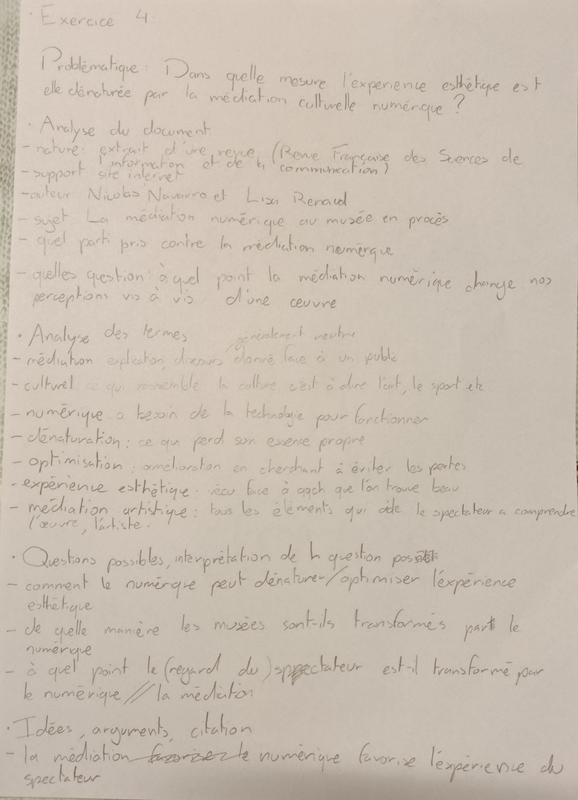 · Exercice 4:
Problématique: Dans quelle mesure l'experience esthétique est
elle dénaturée par la médiation culturelle numérique ?
· Analyse du document
- nature: extrait d'une revue (Revue Française des Sciences de
l'information et de la communication)
- support site internet
- auteur Nicolas Navarro et Lisa Renaud
- sujet La médiation numérique au musée en procès
- quel parti pris contre la médiation numérique
- quelles question: à quel point la médiation numérique change nos
perceptions vis à vis d'une œuvre
· Analyse des termes
généralement neutre
- médiation explication, discours donné face à un public
- culturel ce qui rassemble la culture c'est à dire l'art, le sport etc
- numérique a besoin de la technologie pour fonctionner
- dénaturation: ce qui perd son essence propre
- optimisation : amélioration en cherchant à éviter les pertes
- expérience esthétique: vécu face à qqch que l'on trouve beau
- médiation artistique: tous les éléments qui aide le spectateur a comprendre
l'œuvre, l'artiste.
· Questions possibles, interprétation de la question
- comment le numérique peut dénaturer/optimiser l'éxpérience
esthétique
- de quelle manière les musées sont-ils transformés par le
numérique
- à quel point le (regard du) spectateur est-il transformé par
le numérique // la médiation
· Idées, arguments, citation
- la médiation numérique favorise l'éxpérience du
spectateur